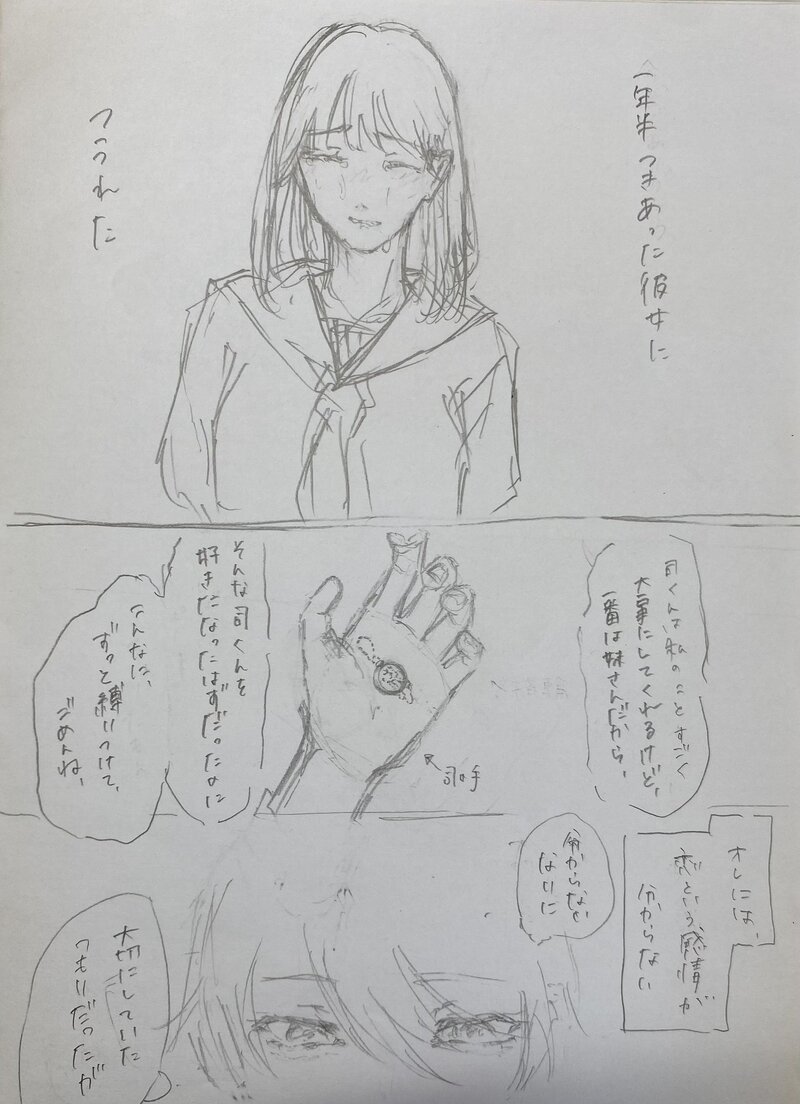 一年半つきあった彼女に
フラれた
司くんは私のことすごく
大事にしてくれるけど、
一番は妹さんだから、
そんな司くんを
好きになったはずだったのに
こんなに、
ずっと縛りつけて、
ごめんね、
司の手
オレには、
恋という感情が
分からない
分からない
なりに
大切にしていた
つもりだったが